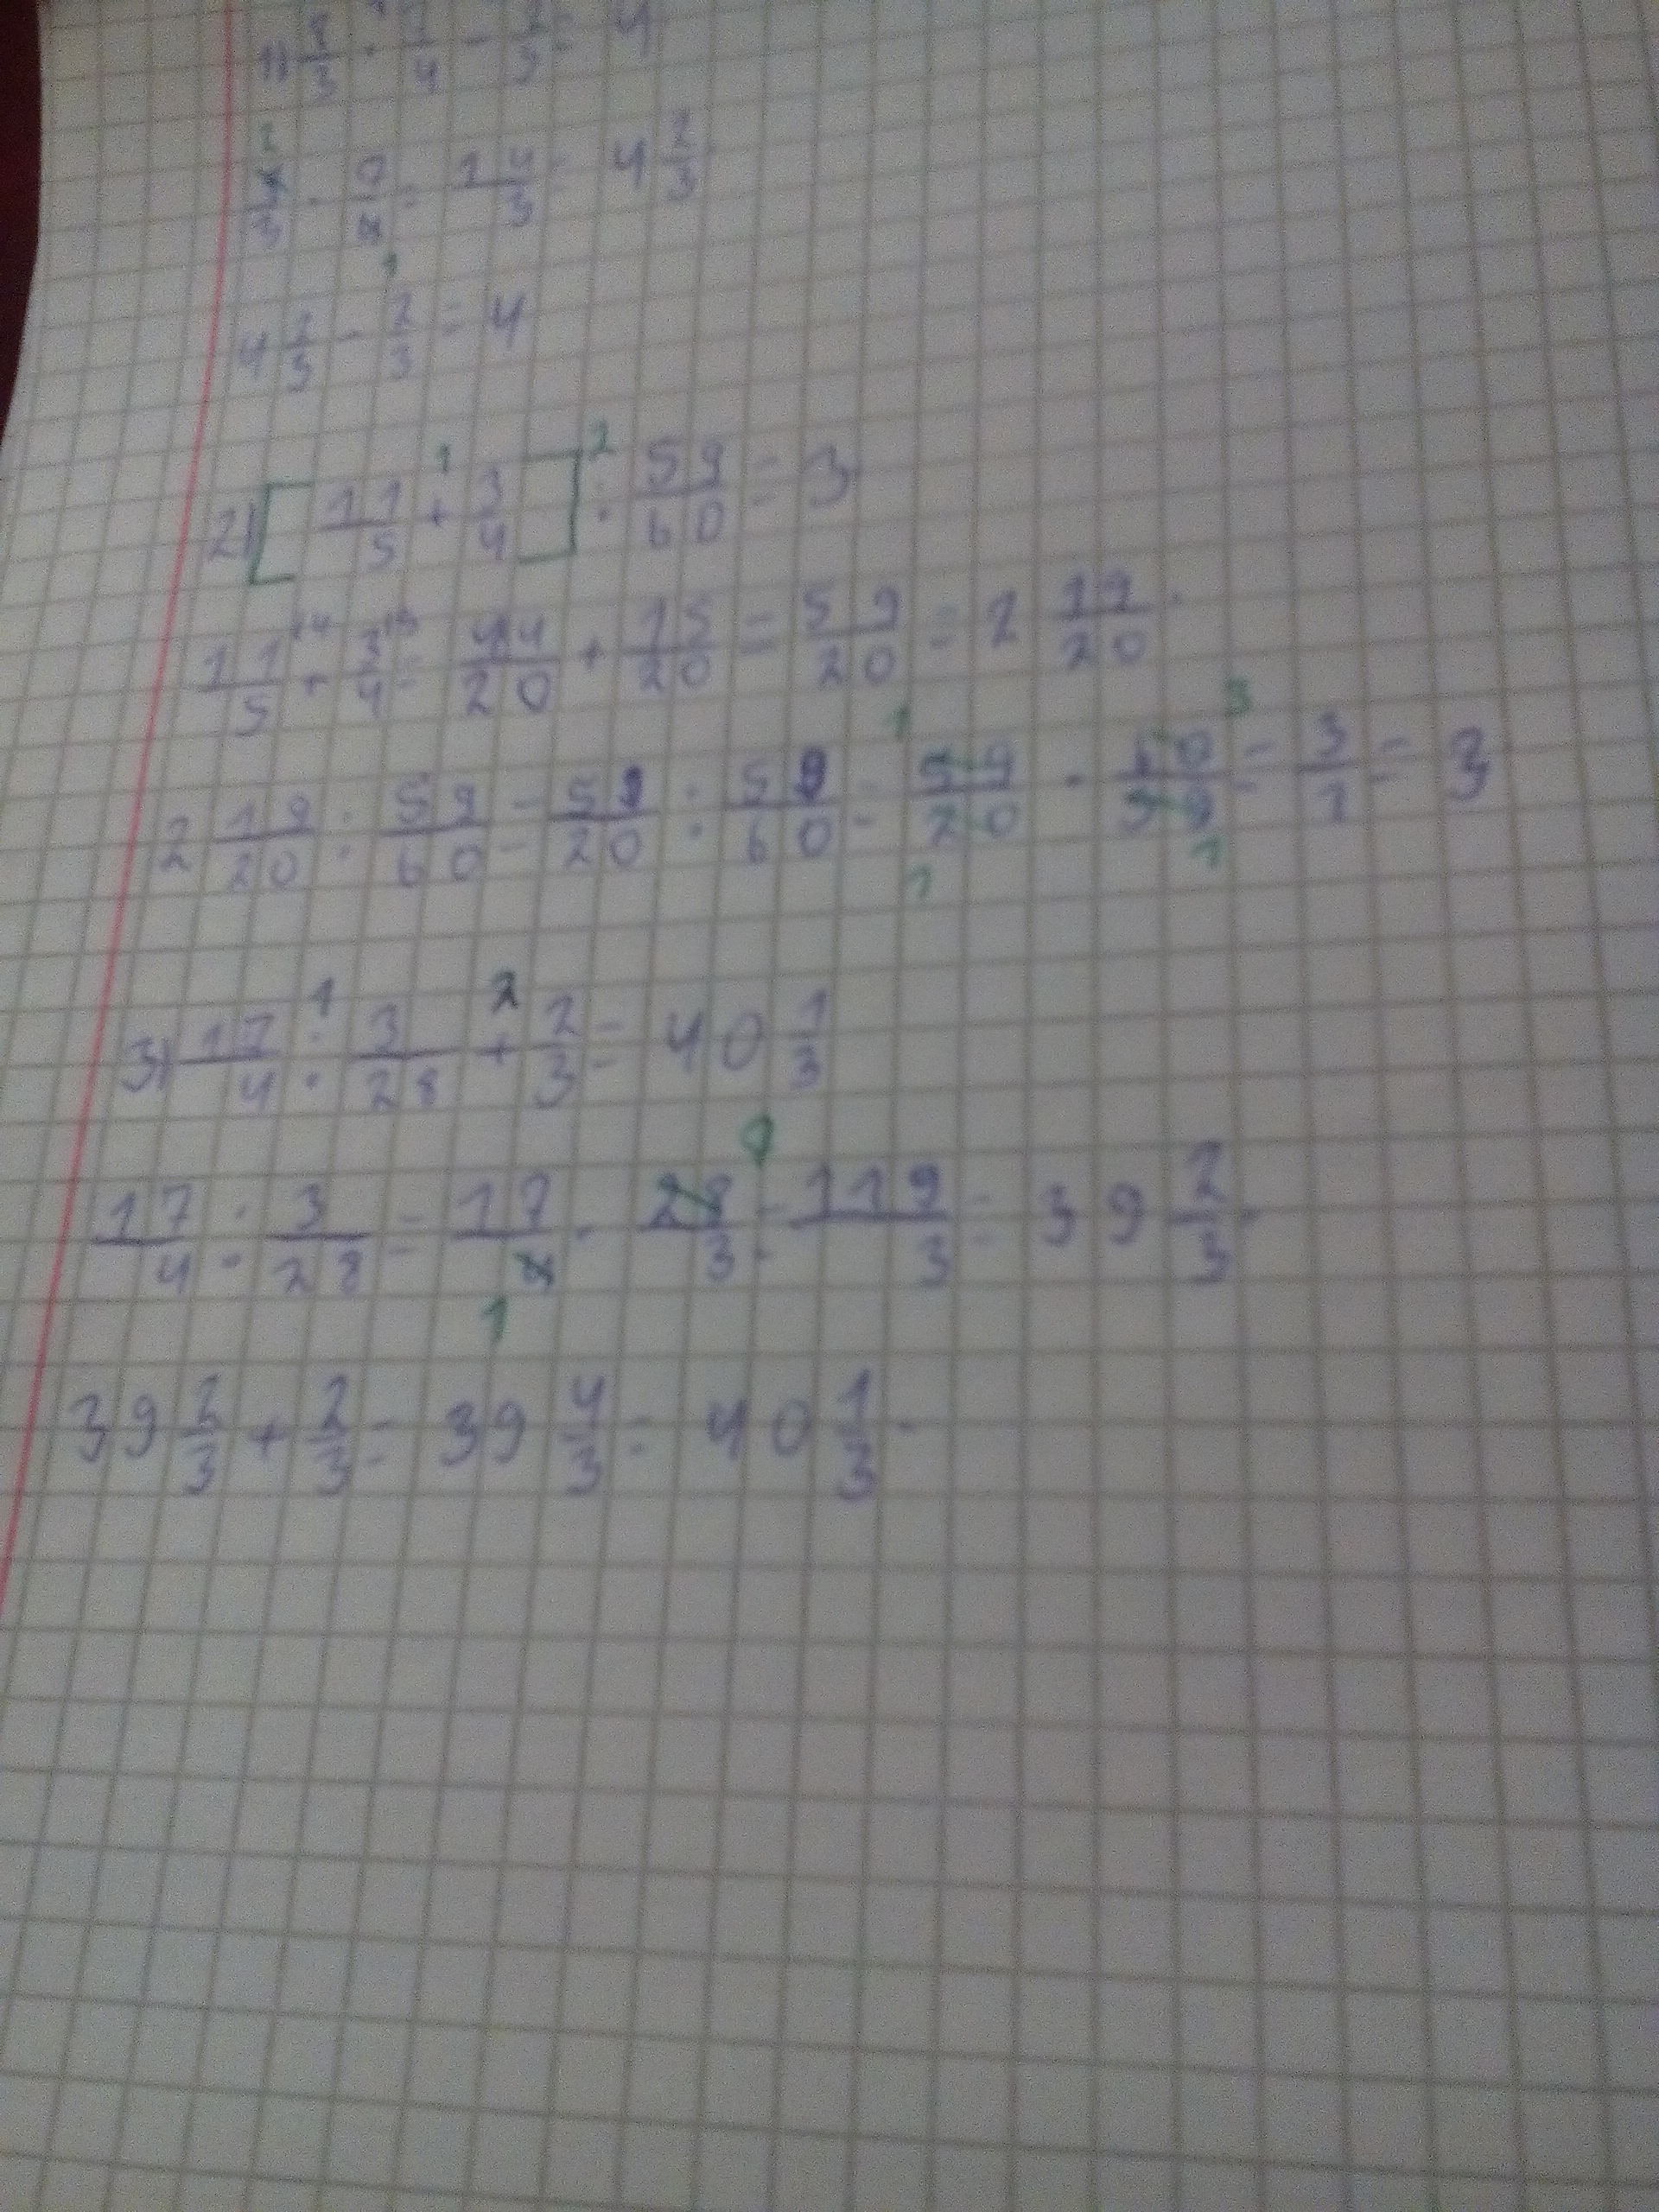 1) 8/3 · 7/4 - 2/3 = 4
8/3 · 7/4 = 14/3 = 4 2/3
4 2/3 - 2/3 = 4
2) [11/5 + 3/4] : 59/60 = 3
11/5 + 3/4 = 44/20 + 15/20 = 59/20 = 2 19/20.
2 19/20 : 59/60 = 59/20 : 59/60 = 59/20 · 60/59 = 3/1 = 3
3) 17/4 : 3/28 + 2/3 = 40 1/3
17/4 : 3/28 = 17/4 · 28/3 = 119/3 = 39 2/3.
39 2/3 + 2/3 = 39 4/3 = 40 1/3.